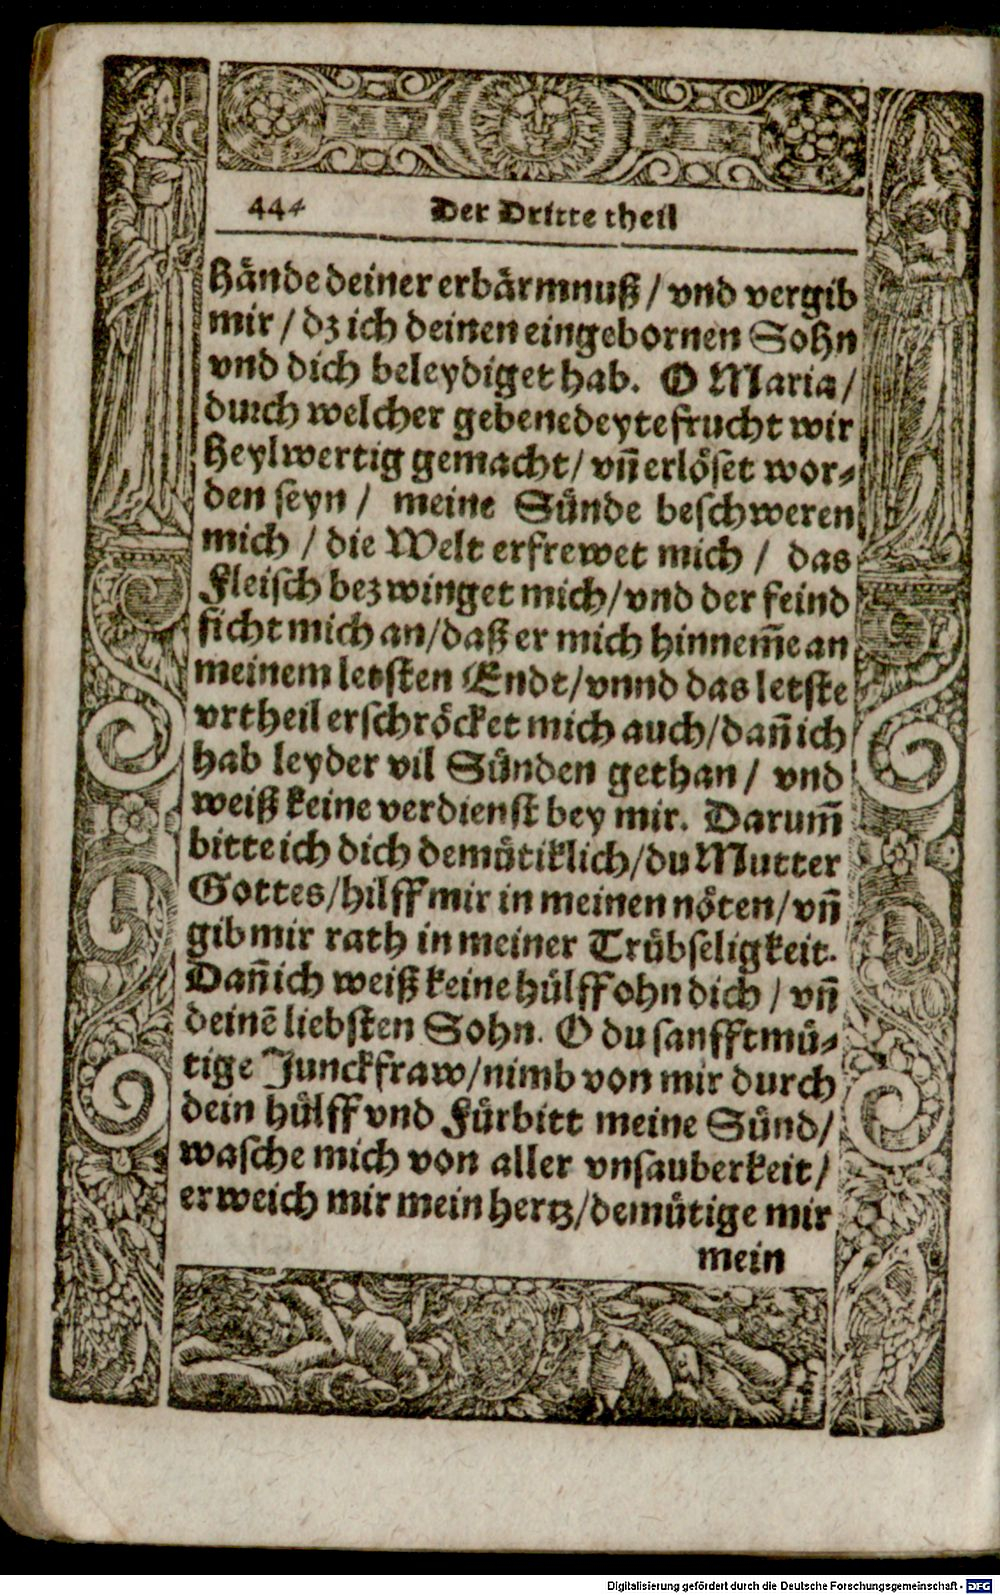 444 Der Dritte theil
Hände deiner erbärmnuß / vnd vergib
mir / dz ich deinen eingebornen Sohn
vnd dich beleydiget hab. O Maria /
durch welcher gebenedeyte frucht wir
Heylwertig gemacht / vñ erlöset wor-
den seyn / meine Sünde beschweren
mich / die Welt erfrewet mich / das
Fleisch bezwinget mich / vnd der feind
ficht mich an / daß er mich hinnem̃e an
meinem letsten Endt / vnnd das letste
vrtheil erschröcket mich auch / dañ ich
hab leyder vil Sünden gethan / vnd
weiß keine verdienst bey mir. Darum̃
bitte ich dich demütiklich / du Mutter
Gottes / hilff mir in meinen nöten / vñ
gib mir rath in meiner Trübseligkeit.
Dañ ich weiß keine hülff ohn dich / vñ
deinẽ liebsten Sohn. O du sanfftmü-
tige Junckfraw / nimb von mir durch
dein hülff vnd Fürbitt meine Sünd /
wasche mich von aller vnsauberkeit /
erweich mir mein hertz / demütige mir
mein
Digitalisierung gefördert durch die Deutsche Forschungsgemeinschaft - DFG